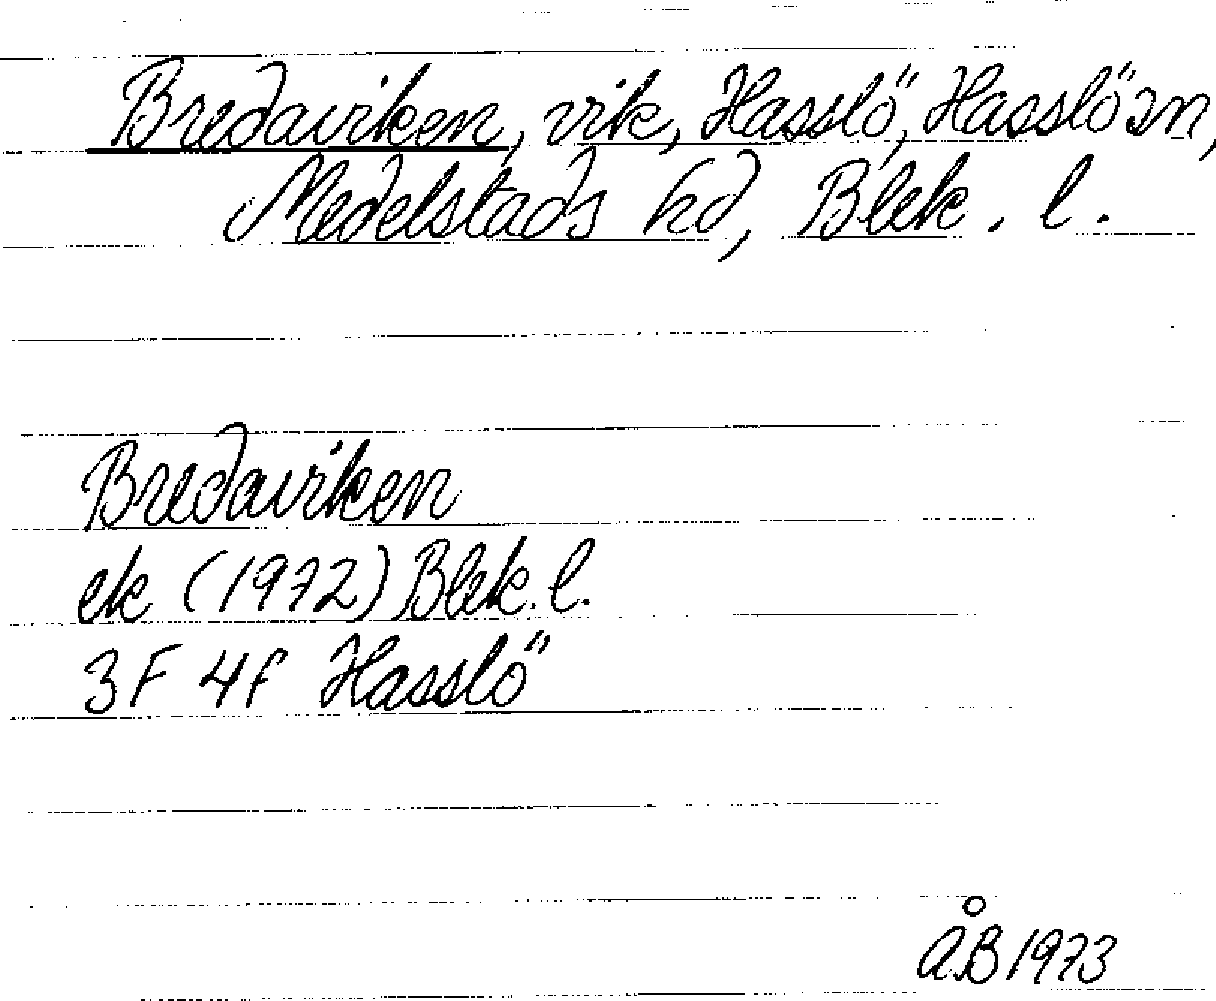 Bredaviken, vik, Hasslö, Hasslö sn,
Medelstads hd, Blek. l.
Bredaviken
ek (1972) Blek. l.
3F 4f Hasslö
ÅB 1973